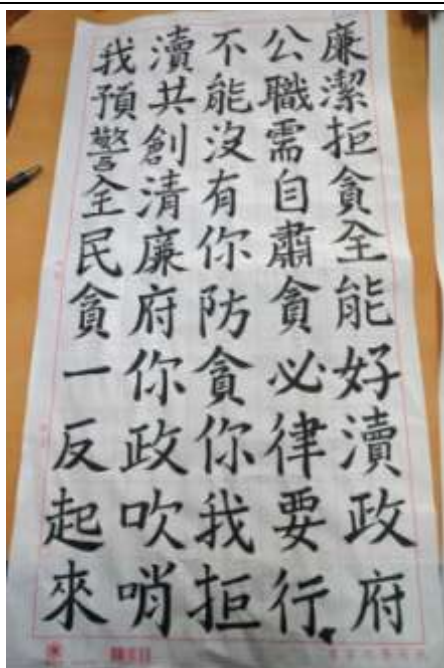 廉潔拒貪全能好瀆政府
公職需自肅貪必律要行
不能沒有你防貪你我拒
瀆共創清廉府你政吹哨
我預警全民貪一反起來